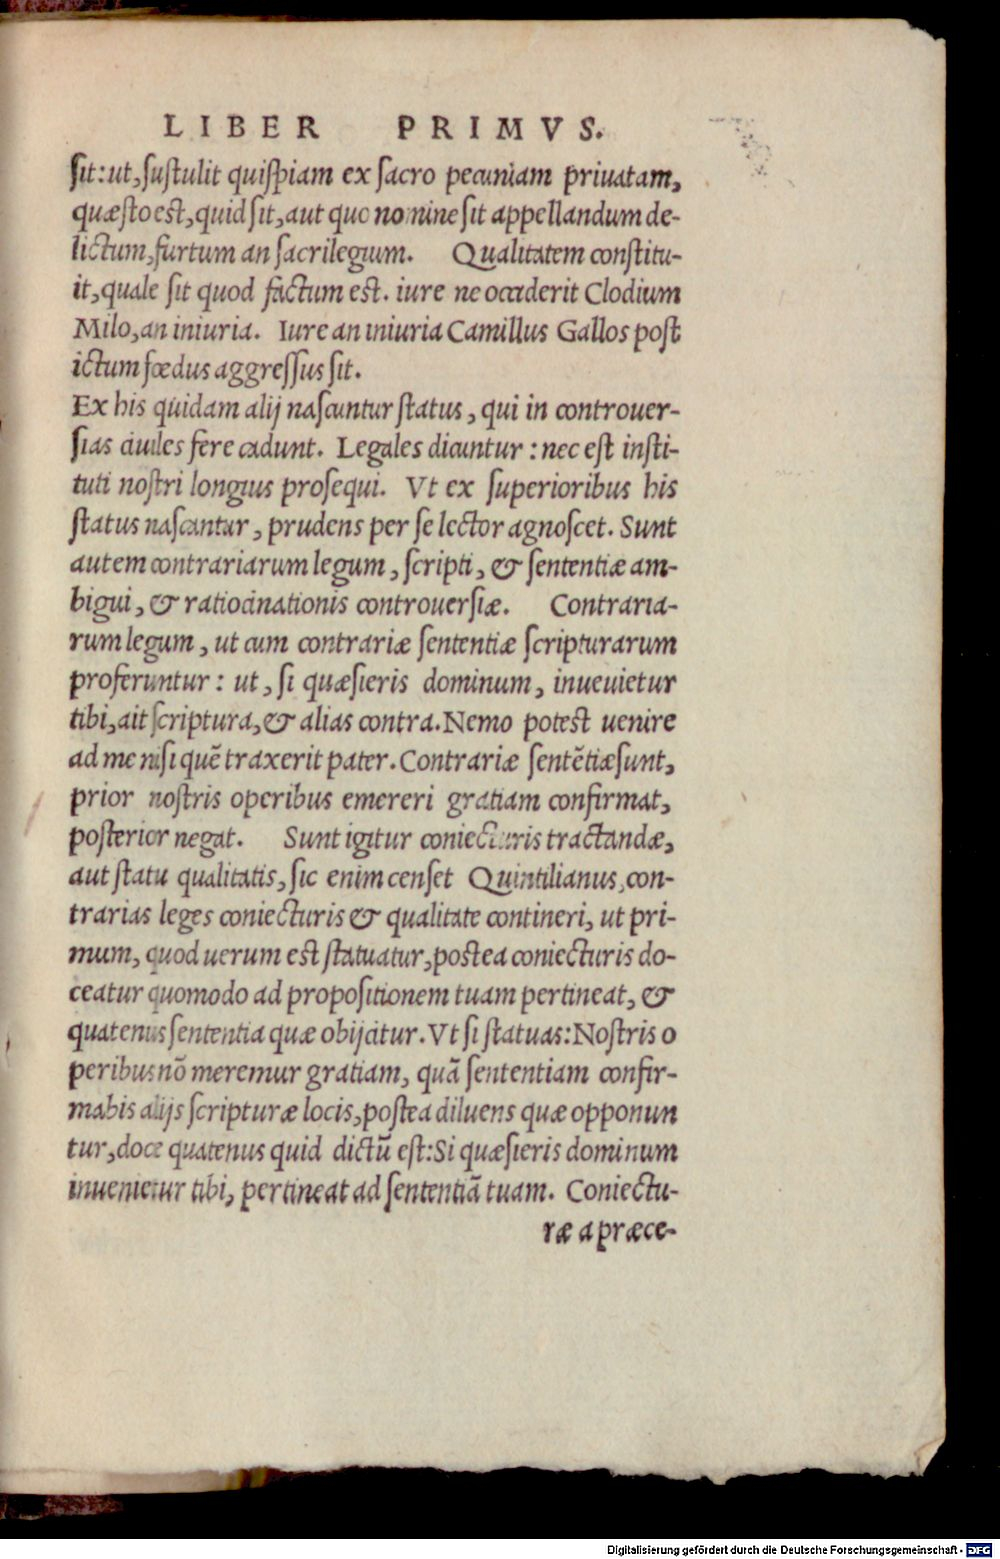 LIBER PRIMVS.
ſit: ut, ſuſtulit quiſpiam ex ſacro pecuniam priuatam,
quæſto eſt, quid ſit, aut quo nomine ſit appellandum de-
lictum, furtum an ſacrilegium. Qualitatem conſtitu-
it, quale ſit quod factum eſt. iure ne occiderit Clodium
Milo, an iniuria. Iure an iniuria Camillus Gallos poſt
ictum fœdus aggreſſus ſit.
Ex his quidam alij naſcuntur ſtatus, qui in controuer-
ſias ciuiles fere cadunt. Legales dicuntur: nec eſt inſti-
tuti noſtri longius proſequi. Vt ex ſuperioribus his
ſtatus naſcantur, prudens per ſe lector agnoſcet. Sunt
autem contrariarum legum, ſcripti, & ſententiæ am-
bigui, & ratiocinationis controuerſiæ. Contraria-
rum legum, ut cum contrariæ ſententiæ ſcripturarum
proferuntur: ut, ſi quæſieris dominum, inueuietur
tibi, ait ſcriptura, & alias contra. Nemo poteſt uenire
ad me niſi quē traxerit pater. Contrariæ ſentētiæ ſunt,
prior noſtris operibus emereri gratiam confirmat,
poſterior negat. Sunt igitur coniecturis tractandæ,
aut ſtatu qualitatis, ſic enim cenſet Quintilianus, con-
trarias leges coniecturis & qualitate contineri, ut pri-
mum, quod uerum eſt ſtatuatur, poſtea coniecturis do-
ceatur quomodo ad propoſitionem tuam pertineat, &
quatenus ſententia quæ obijcitur. Vt ſi ſtatuas: Noſtris o
peribus nō meremur gratiam, quā ſententiam confir-
mabis alijs ſcripturæ locis, poſtea diluens quæ opponun
tur, doce quatenus quid dictū eſt: Si quæſieris dominum
inuenietur tibi, pertineat ad ſententiā tuam. Coniectu-
ræ a præce-
Digitalisierung gefördert durch die Deutsche Forschungsgemeinschaft - DFG